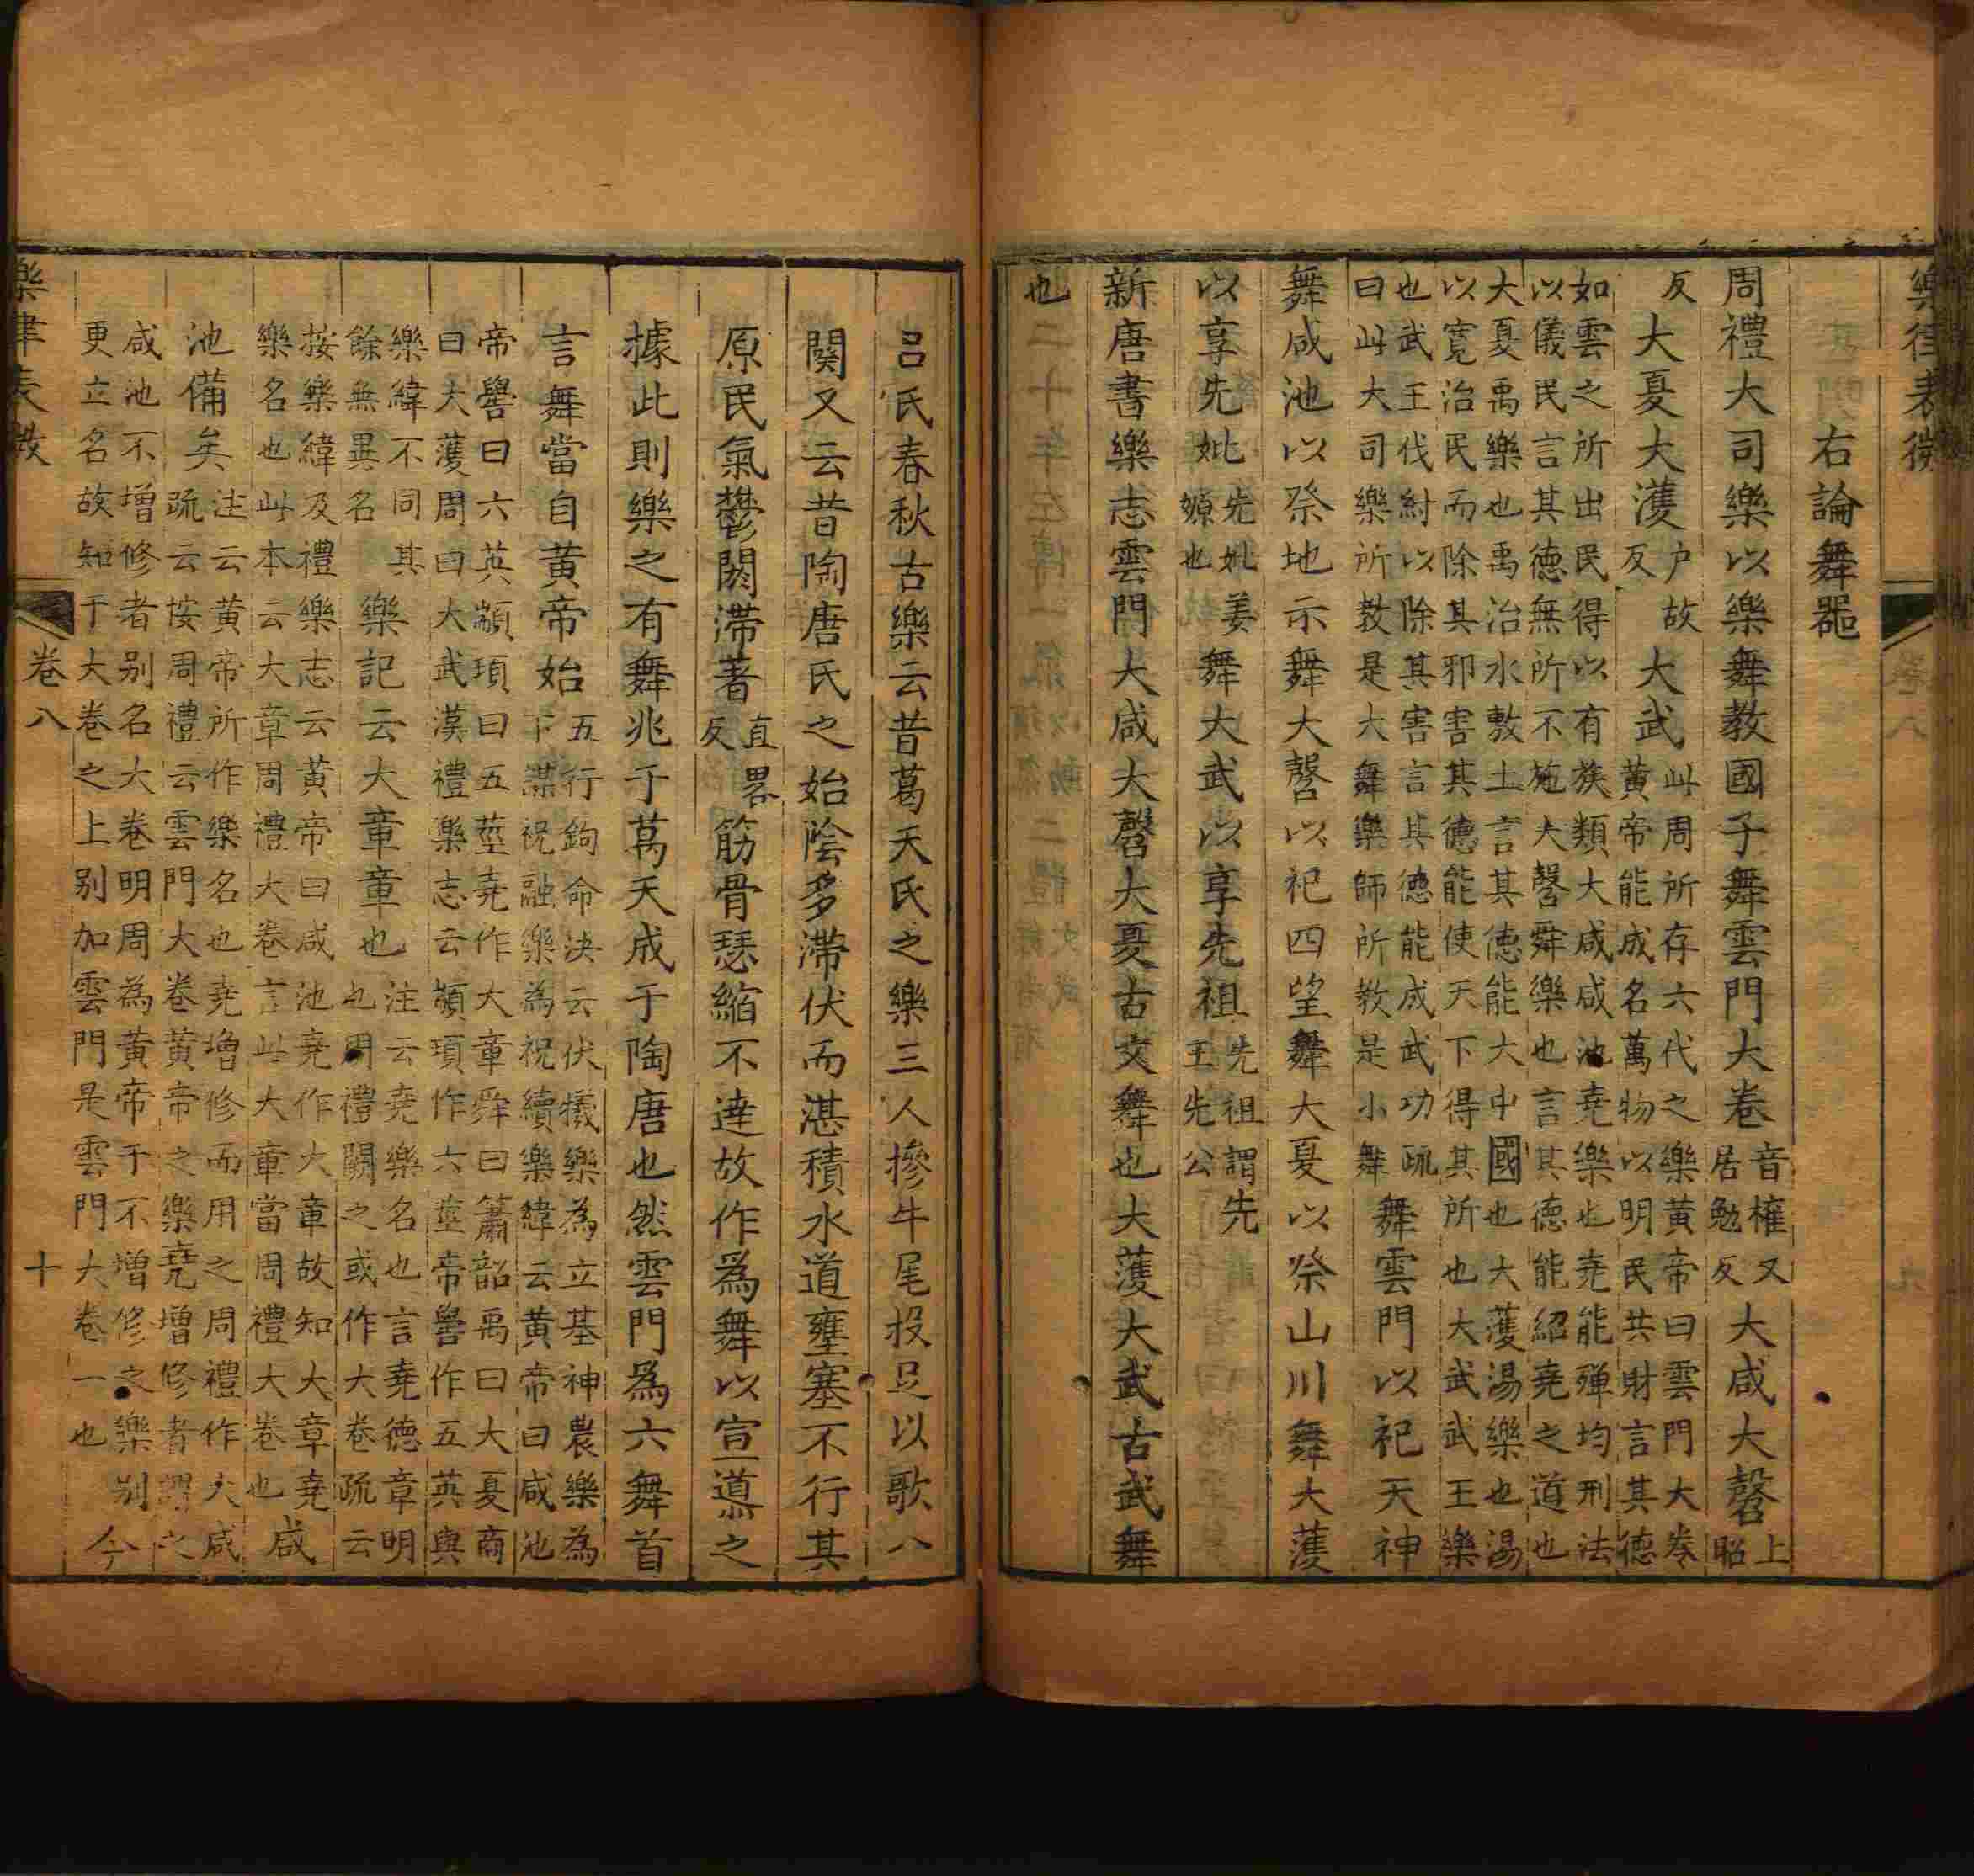 樂律表微
右論舞器
周禮大司樂以樂舞教國子舞雲門大卷音權又居勉反大咸大磬上昭
反大夏大濩户故反大武此周所存六代之樂黃帝曰雲門大卷黃帝能成名萬物以明民共財言其德
如雲之所出民得以有族類大咸咸池堯樂也堯能殫均刑法以儀民言其德無所不施大磬舜樂也言其德能紹堯之道也
大夏禹樂也禹治水敷土言其德能大中國也大濩湯樂也湯以寬治民而除其邪害其德能使天下得其所也大武武王樂
也武王伐紂以除其害言其德能成武功疏曰此大司樂所教是大舞樂師所教是小舞舞雲門以祀天神
舞咸池以祭地示舞大磬以祀四望舞大夏以祭山川舞大濩
以享先妣先妣姜嫄也舞大武以享先祖先祖謂先王先公
新唐書樂志雲門大咸大磬大夏古文舞也大濩大武古武舞
也
呂氏春秋古樂云昔葛天氏之樂三人摻牛尾投足以歌八
闋又云昔陶唐氏之始陰多滯伏而湛積水道壅塞不行其
原民氣鬱閼滯著直畧反筋骨瑟縮不達故作爲舞以宣導之
據此則樂之有舞兆于萬天成于陶唐也然雲門爲六舞首
言舞當自黃帝始五行鉤命决云伏犧樂為立基神農樂為下謀祝融樂為祝續樂緯云黃帝曰咸池
帝嚳曰六英顓頊曰五莖堯作大章舜曰簫韶禹曰大夏商曰大濩周曰大武漢禮樂志云顓頊作六莖帝嚳作五英與
樂緯不同其餘無異名樂記云大章章也注云堯樂名也言堯德章明也周禮闕之或作大卷疏云
按樂緯及禮樂志云黃帝曰咸池堯作大章故知大章堯樂名也此本云大章周禮大卷言此大章當周禮大卷也咸
池備矣注云黃帝所作樂名也堯增修而用之周禮作大咸疏云按周禮云雲門大卷黃帝之樂堯增修者謂之
咸池不增修者别名大卷明周為黃帝于不增修之樂别更立名故知于大卷之上别加雲門是雲門大卷一也今
樂律表微
卷八
十